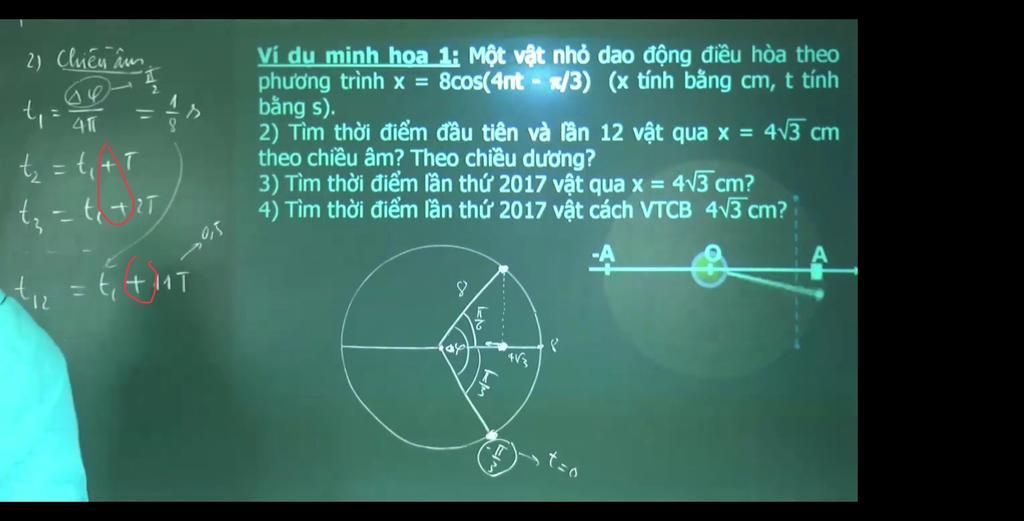 2) Chiều âm
t₁ = Δφ/4π → π/2 = 1/8 s
t₂ = t₁ + T
t₃ = t₁ + 2T
t₁₂ = t₁ + 11T
0,5
Ví dụ minh họa 1: Một vật nhỏ dao động điều hòa theo
phương trình x = 8cos(4πt - π/3) (x tính bằng cm, t tính
bằng s).
2) Tìm thời điểm đầu tiên và lần 12 vật qua x = 4√3 cm
theo chiều âm? Theo chiều dương?
3) Tìm thời điểm lần thứ 2017 vật qua x = 4√3 cm?
4) Tìm thời điểm lần thứ 2017 vật cách VTCB 4√3 cm?
-A O A
8
π/6
Δφ 4√3 8
π/3
-π/3 → t=0